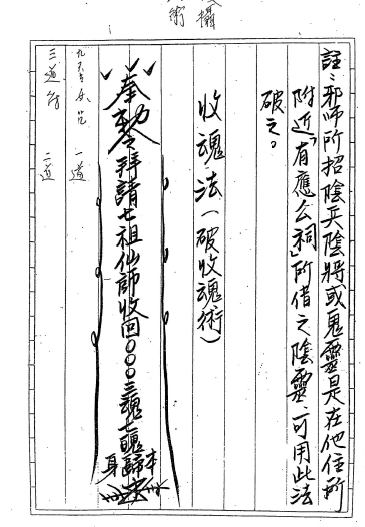 攝
術
註:邪師所招陰兵陰將或鬼靈是在他住所
附近「有應公祠」所借之陰靈、可用此法
破之。
收魂法(破收魂術)
奉勅令拜請七祖仙師收回〇〇〇三魂七魄歸本
身
一道
三道 二道